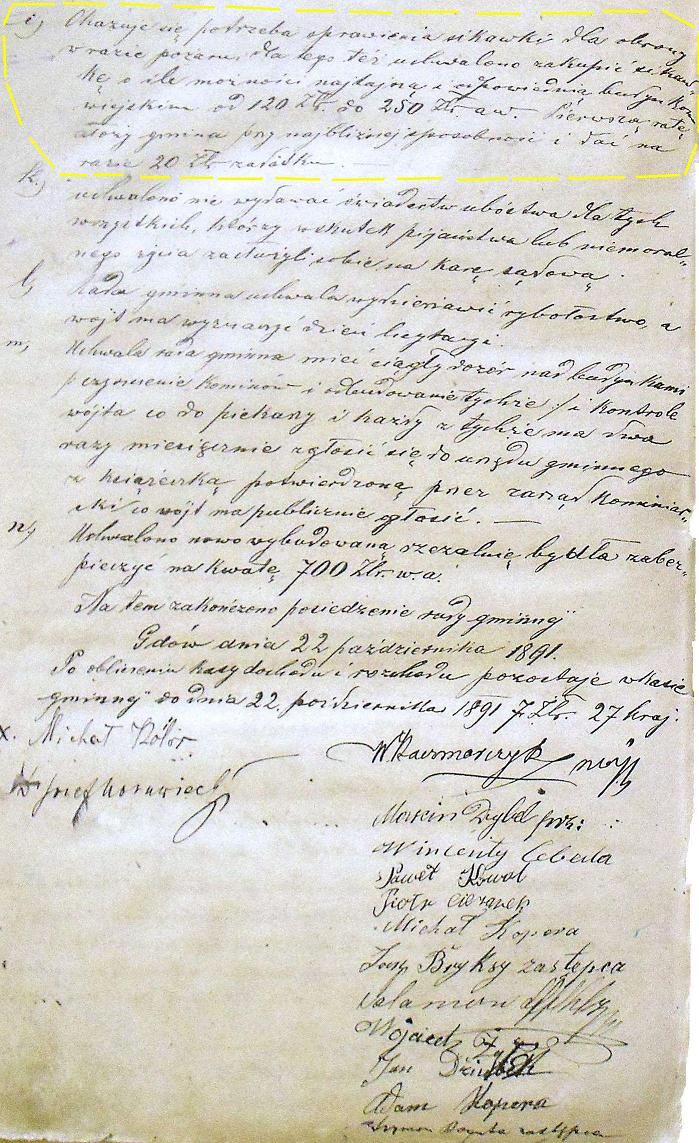 i) Okazuje się potrzeba sprawienia sikawki dla obrony
w razie pożaru, dla tego też uchwalono zakupić sikaw-
kę o ile możności najtańszą i odpowiednią budynkom
wiejskim od 120 Złr. do 250 Złr. a.w. Pierwszą ratę
złoży gmina przy najbliższej sposobności i dać na
razie 20 Złr zadatku. —
k.) uchwalono nie wydawać świadectw ubóstwa dla tych
wszystkich, którzy wskutek pijaństwa lub niemoral-
nego życia zasłużyli sobie na karę sądową.
l) Rada gminna uchwala wydzierżawić rybołostwo, a
wójt ma wyznaczyć dzień licytacyi.
m) Uchwala rada gminna mieć ciągły dozór nad budynkami
czyszczenie kominów i odbudowanie tychże /: a kontrole
wójta co do piekarzy i każdy z tychże ma dwa
razy miesięcznie zgłosić się do urzędu gminnego
z książeczką potwierdzoną przez zarząd kominiar-
ski co wójt ma publicznie ogłosić. —
n) Uchwalono nowo wybudowaną bydła zabez-
pieczyć na kwotę 700 Złr. w.a.
Na tem zakończono posiedzenie rady gminnéj
Gdów dnia 22 października 1891.
Po obliczeniu kasy dochodu i rozchodu pozostaje w kasie
gminnéj do dnia 22. października 1891 7. Złr. 27 kraj.
x. Michał
W Kaczmarczyk wójt
Józef
Marcin Dybel prz:
Wincenty Cebula
Paweł Kowal
Piotr Cieżarek
Michał Kopera
Józef Bryksy zastępca
Salamon
Wojciech
Jan
Adam Kopera
Szymon zastępca